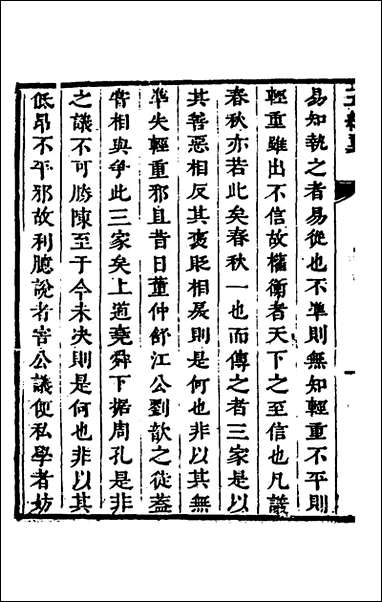 易知執之者易從也不準則無知輕重不平則
輕重雖出不信故權衡者天下之至信也凡議
春秋亦若此矣春秋一也而傳之者三家是以
其善惡相反其褒貶相戾則是何也非以其無
準失輕重邪且昔日董仲舒江公劉歆之徒蓋
嘗相與爭此三家矣上道堯舜下據周孔是非
之議不可勝陳至于今未决則是何也非以其
低昂不平邪故利臆說者害公議便私學者妨